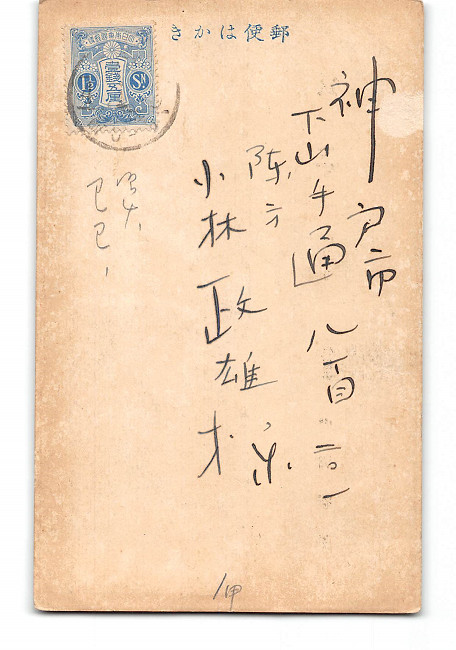 郵便はかき
大日本帝國郵便
壹銭五厘
1½ Sn
神戸市
下山手通八丁目二〇一
陳方
小林政雄様
昭六